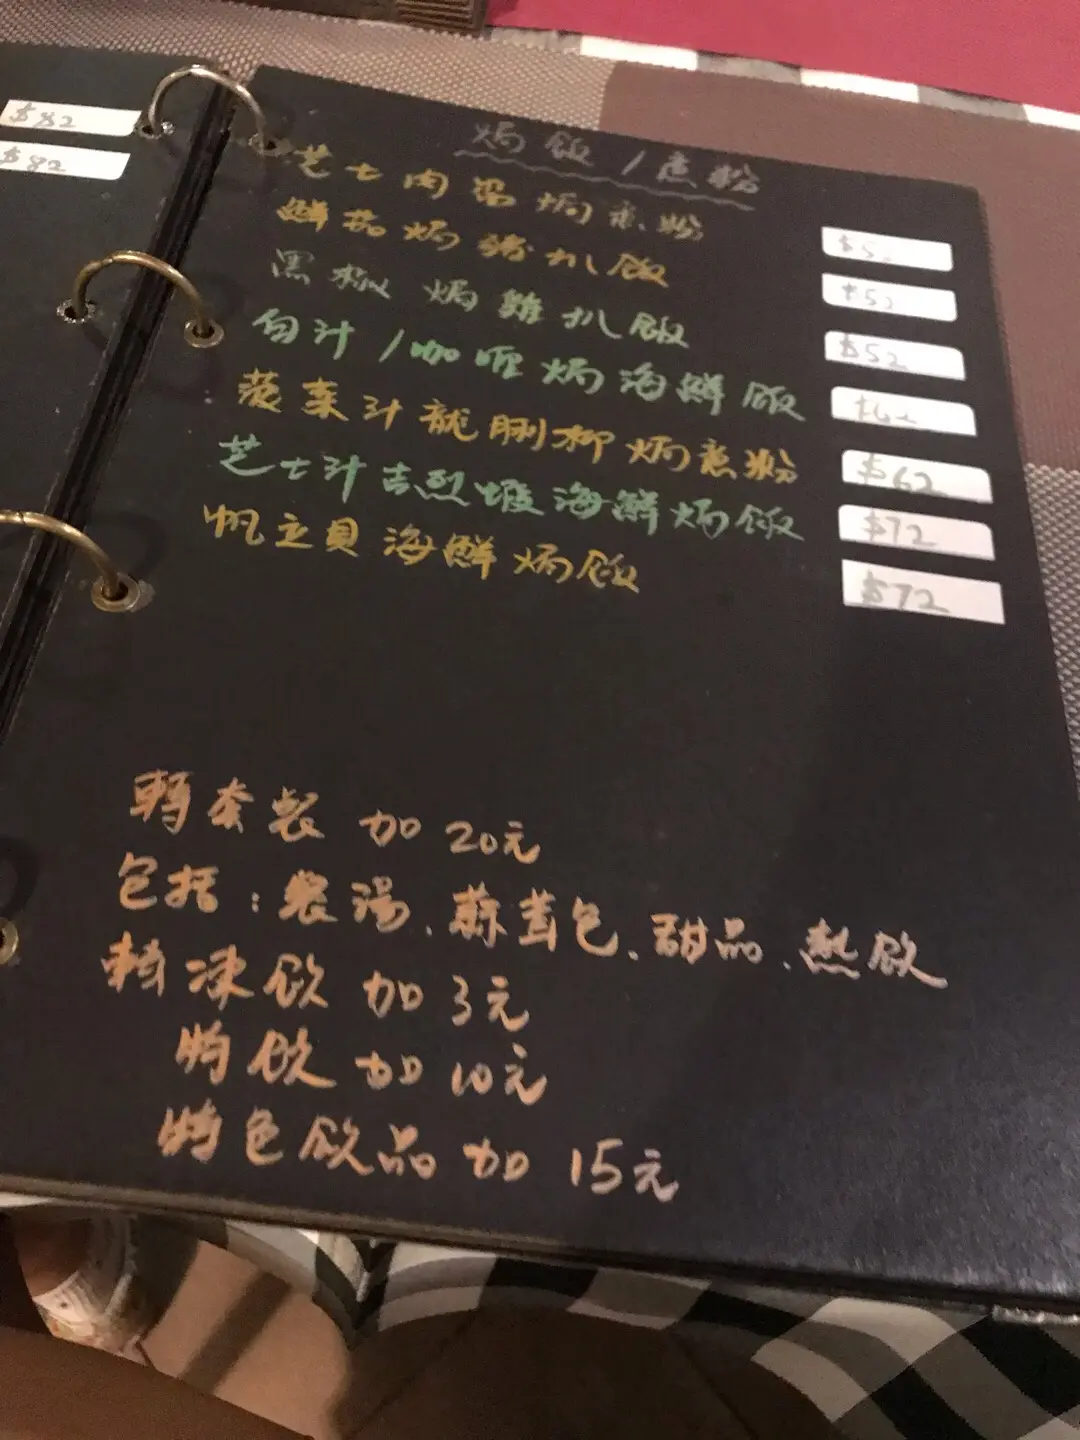 $82
$82
焗飯/意粉
芝士肉醬焗意粉 $52
鮮茄焗豬扒飯 $52
黑椒焗雞扒飯 $52
白汁/咖喱焗海鮮飯
菠菜汁龍脷柳焗意粉 $62
芝士汁吉烈蝦海鮮焗飯 $72
帆立貝海鮮焗飯 $72
轉套餐 加20元
包括:餐湯、蒜茸包、甜品、熱飲
轉凍飲 加3元
特飲 加10元
特色飲品 加15元